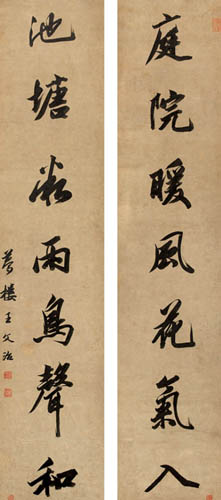 庭院暖風花氣入
池塘水雨鳥聲和
夢樓王文治